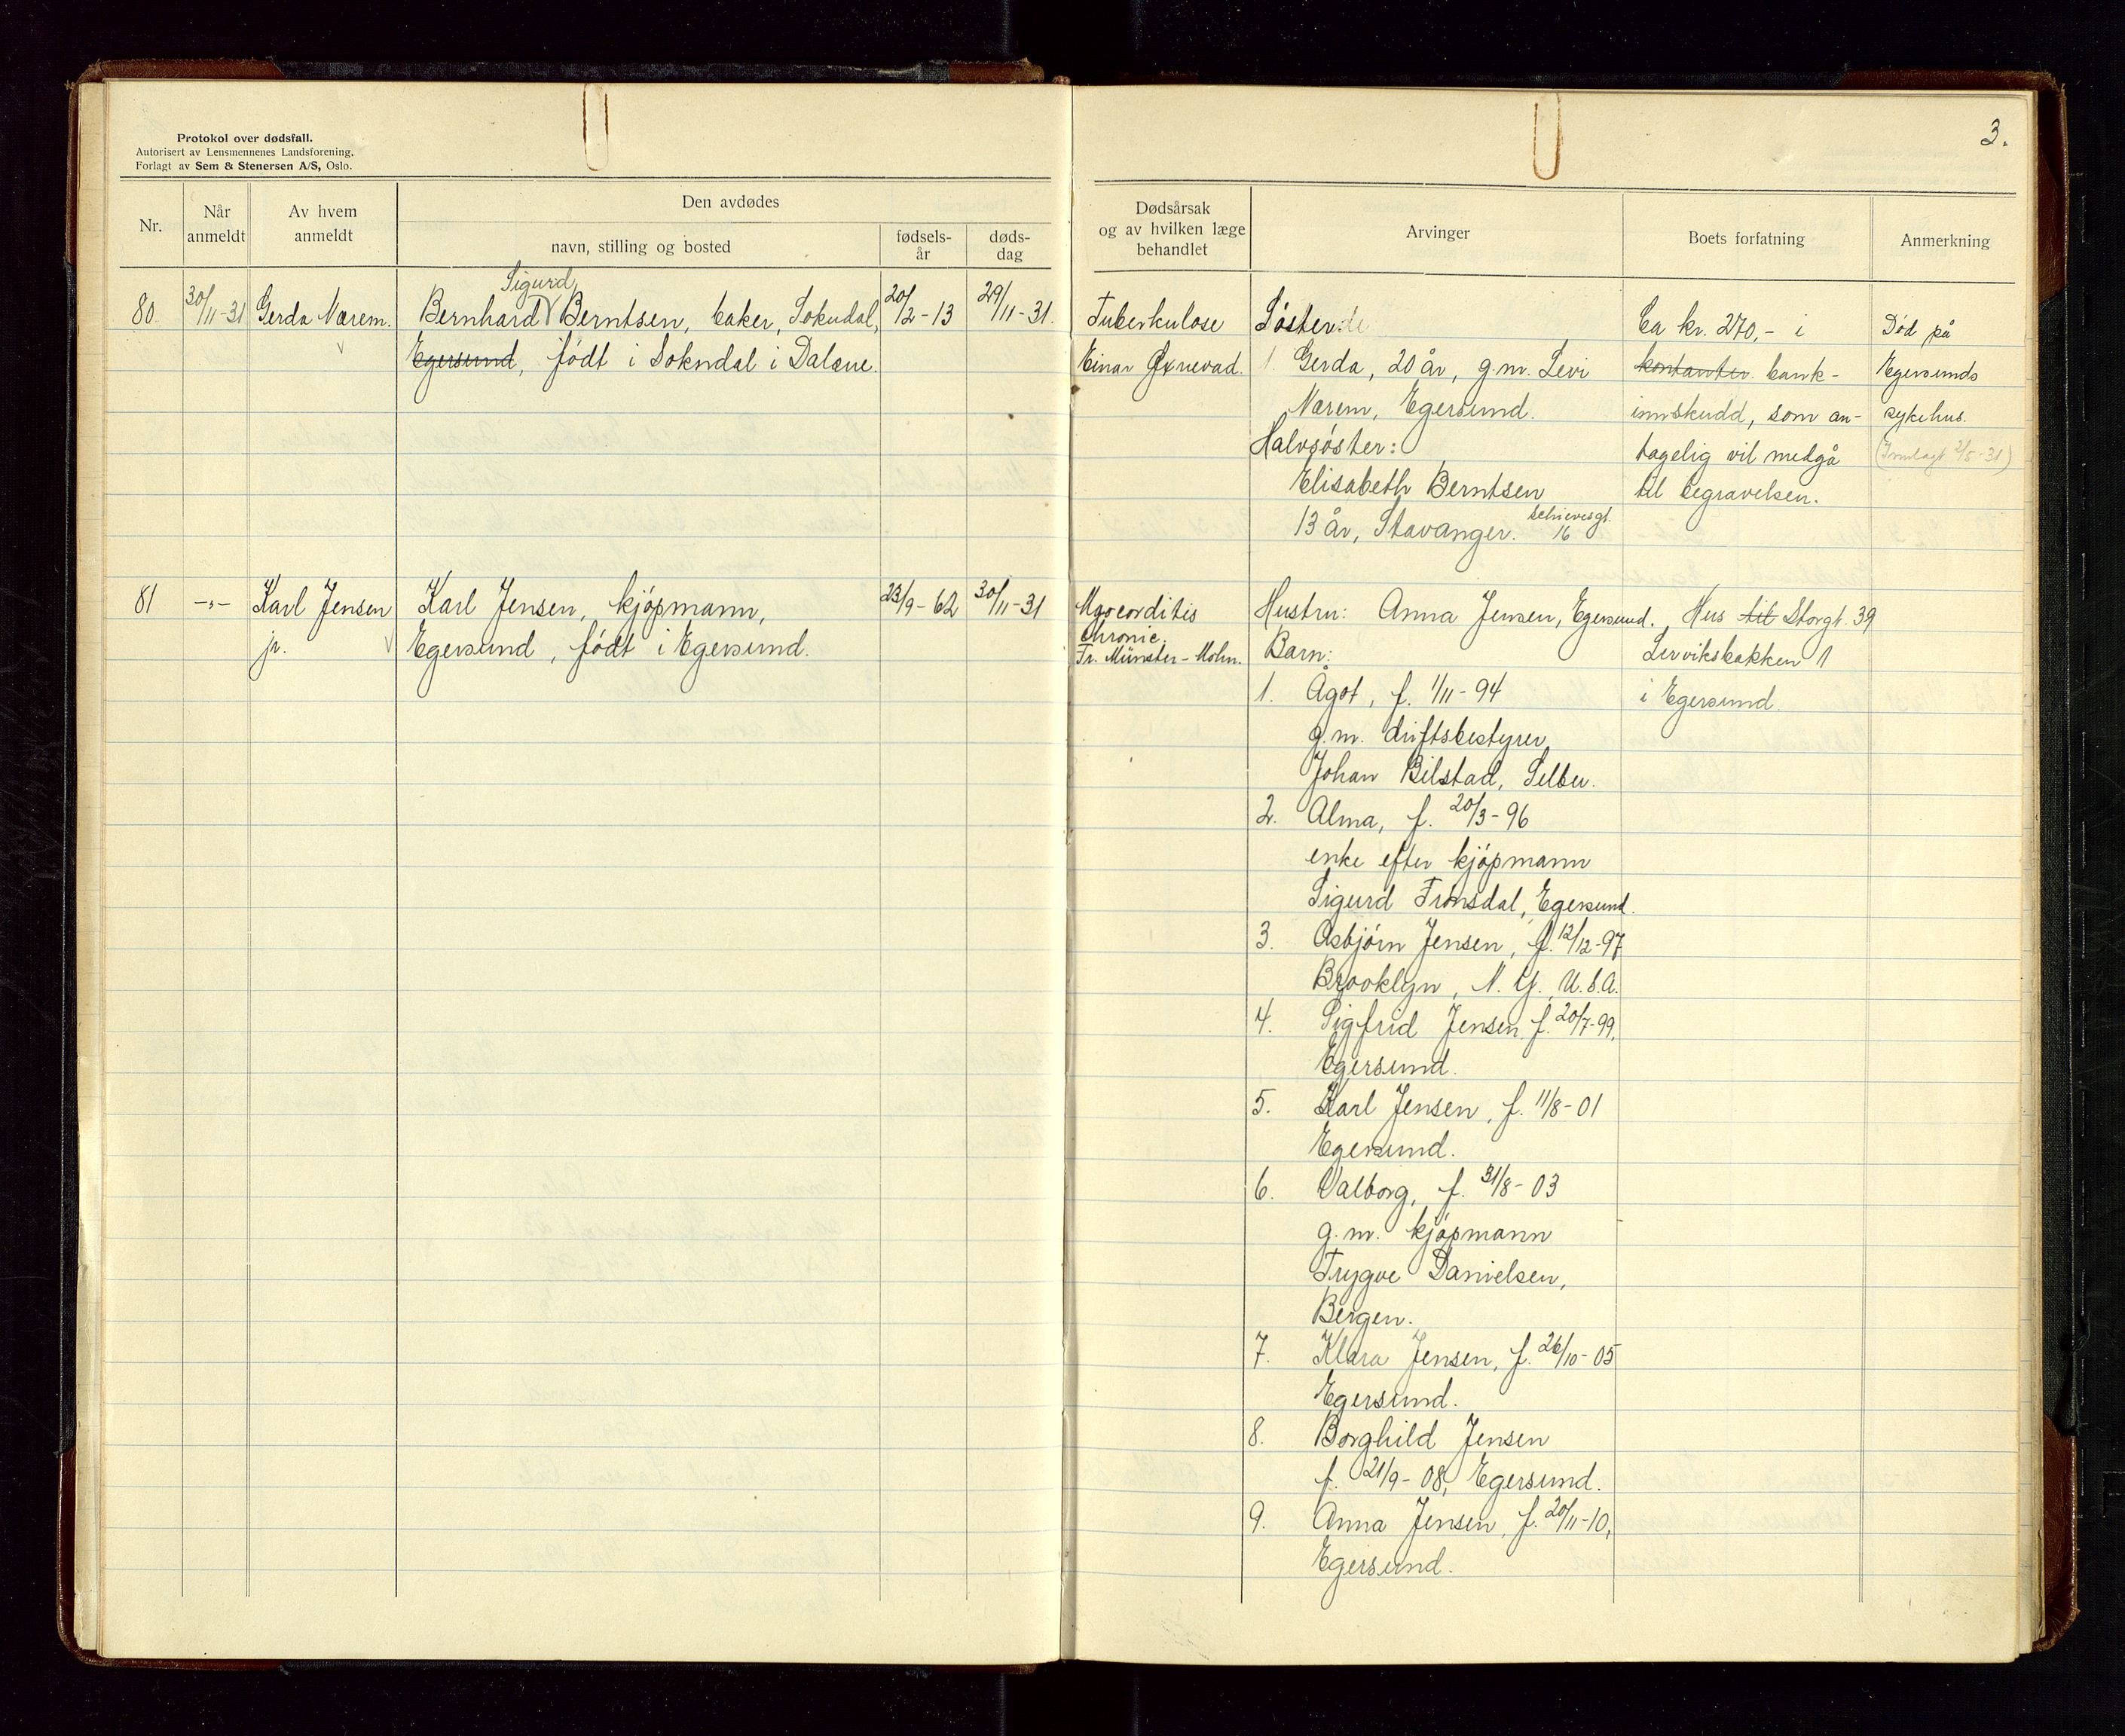 3.
Protokol over dødsfall.
Autorisert av Lensmennenes Landsforening.
Forlagt av Sem & Stenersen A/S, Oslo.
Nr.
Når anmeldt
Av hvem anmeldt
Den avdødes
navn, stilling og bosted
fødselsår
dødsdag
Dødsårsak og av hvilken læge behandlet
Arvinger
Boets forfatning
Anmerkning
80.
30/11-31
Gerda Nærem.
Sigurd
Bernhard V Berntsen, baker, Sokndal,
Egersund, født i Sokndal i Dalane.
20/2-13
29/11-31.
Tuberkulose
Einar Øxnevad.
Søster:
1. Gerda, 20 år, g.m. Levi
Nærem, Egersund.
Halvsøster:
Elisabeth Berntsen
13 år, Stavanger.
16
Ca kr. 270,- i
kontanter. bank-
innskudd, som an-
tagelig vil medgå
til begravelsen.
Død på
Egersunds
sykehus.
(Innlagt 2/5-31)
81
-"-
Karl Jensen
jr.
Karl Jensen, kjøpmann,
Egersund, født i Egersund.
23/9-62
30/11-31
Myocarditis
Chronic.
Fr. Münster-Mohn.
Hustru: Anna Jensen, Egersund.
Barn:
1. Ågot, f. 1/11-94
g.m. driftsbestyrer
Johan Bilstad, Selbu.
2. Alma, f. 20/3-96
enke efter kjøpmann
Sigurd Tronsdal, Egersund.
3. Asbjørn Jensen, f. 12/12-97
Brooklyn, N.Y. U.S.A.
4. Sigfrid Jensen f. 20/7-99.
Egersund.
5. Karl Jensen, f. 11/8-01
Egersund.
6. Valborg, f. 31/8-03
g.m. kjøpmann
Trygve Danielsen,
Bergen.
7. Klara Jensen, f. 26/10-05
Egersund.
8. Borghild Jensen
f. 21/9-08, Egersund.
9. Anna Jensen, f. 20/11-10,
Egersund.
Hus til Storgt. 39
Lerviksbakken 1
i Egersund.